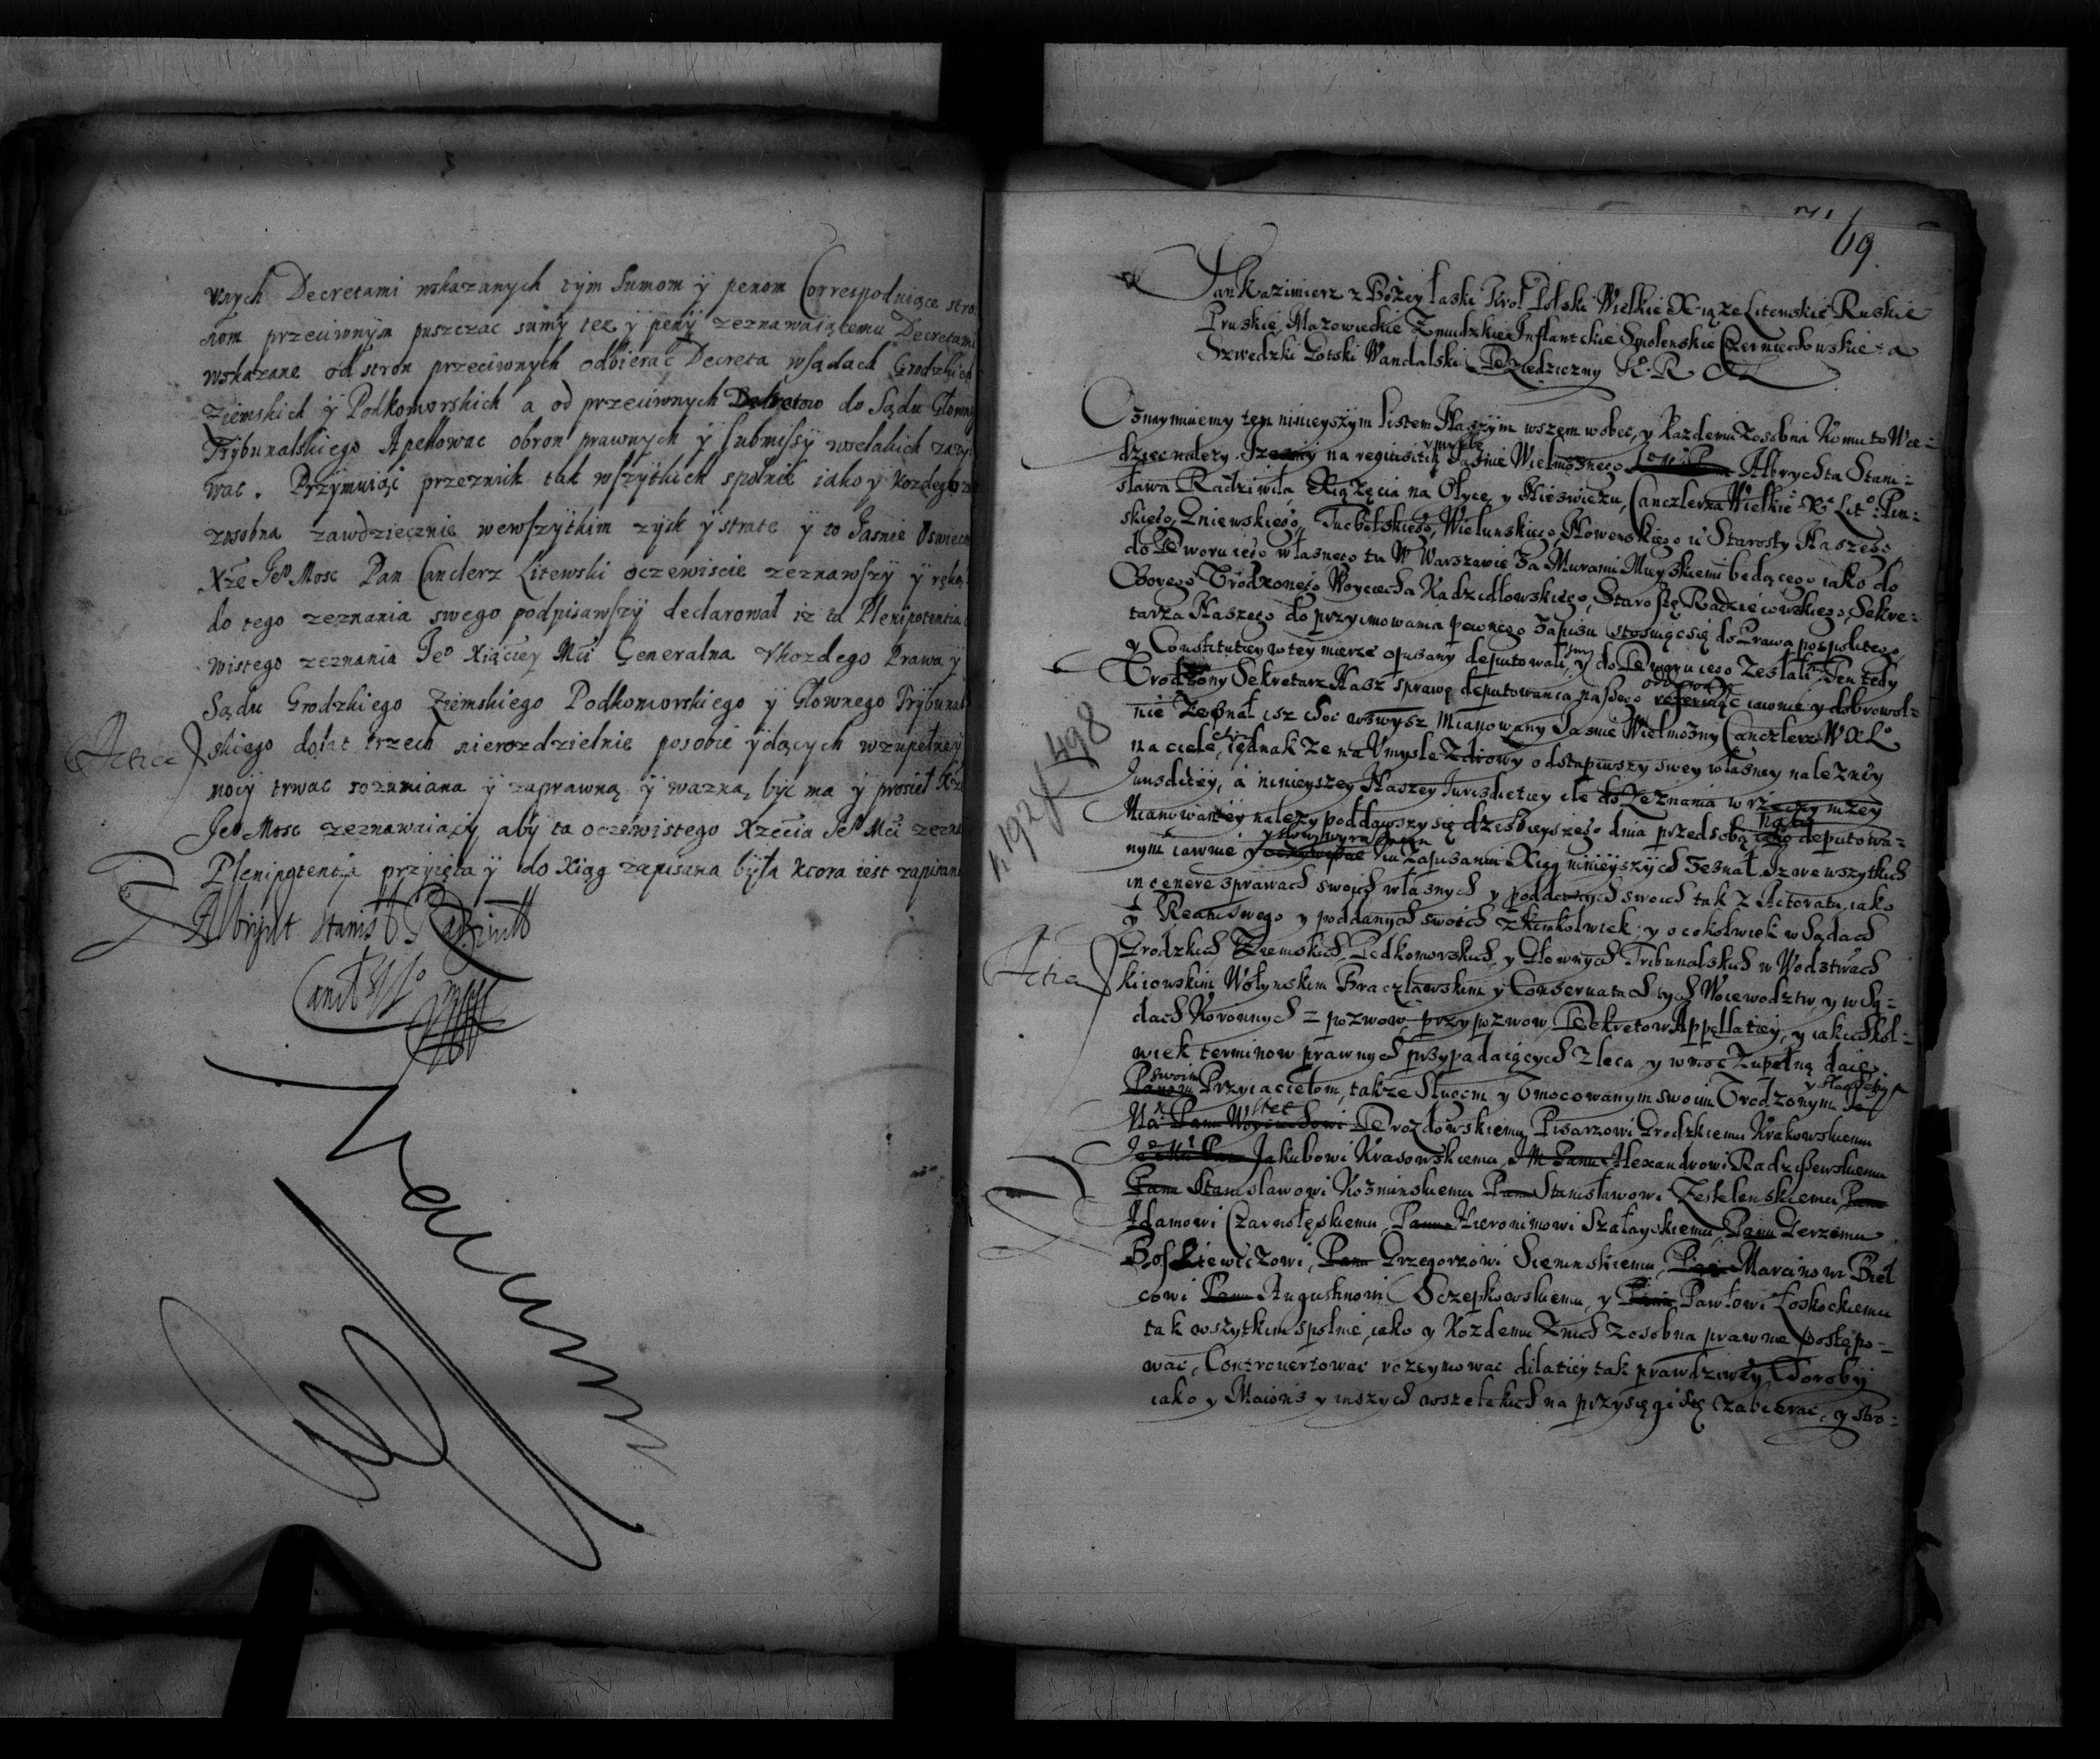 wnych Decretami wskazanych tym Sumom y penom Correspodniące stro
nom przeciwnym puszczac sumy tez y peny zeznawaiącemu Decretami
wskazane od stron przeciwnych odbierac Decreta wsądach Grodzkich
Ziemskich y Podkomorskich a od przeciwnych Dekretow do Sądu Głowne
Trybunalskiego Apellowac obron prawnych y submissy wselakich zazy
wac. Przymuiąc przeznich tak wszytkich spolnie iako y kozdego z
zosobna zawdzięcznie wewszytkim zysk y strate y to Jasnie Oswiec
Xże Je° Mosc Pan Canclerz Litewski oczewiscie zeznawszy y ręką
do tego zeznania swego podpisawszy declarował iz ta Plenipotentia
wistego zeznania Je° Xiącięy Mci Generalna vkozdego Prawa y
Sądu Grodzkiego Ziemskiego Podkomorskiego y Głownego Trybunal
skiego dolat trzech nierozdzielnie posobie ydących wzupełney
mocy trwac rozumiana y zaprawną y wazną byc ma y prosił Xże
Je° Mosc zeznawaiący aby ta oczewistego Xzęcia Je° Mci zezna
Plenipotentia przyięta y do Xiąg zapisana była ktora iest zapisana
Actica
Albrycht Stanisł Radziwiłł
Canc
69
Jan Kazimierz z Bożey łaski Krol Polski Wielkie Xiąże Litewskie Ruskie
Pruskie, Mazowieckie Zmudzkie Inflantckie Smolenskie Czerniechowskie a
Szwedzki Gotski Wandalski Dziedziczny K. R
Oznaymuiemy tym ninieyszym listem Naszym wszem wobec, y Kazdemu zosobna Komu to Wie-
dziec nalezy. Izesmy na requisitią Jasnie Wielmoznego Albrychta Stani-
sława Radziwiła Xiążęcia na Ołyce y Nieswiezu, Canczlerza Wielkie° X° Lit° Pin-
skiego, Gniewskiego, Tucholskiego, Wielunskiego Kowenskiego Starosty Naszego
do Dworu iego własnego tu W Warszawie Za Murami Mieyskiemi będącego iako do
Chorego Urodzonego Woyciecha Kadzidłowskiego, Starostę Radzieiowskiego, Sekre-
tarza Naszego do przyimowania pewnego Zapisu stosuiącsię do Prawa pospolitego,
y Constitutiey w tey mierze opisany deputowali, y do Dworu iego Zesłali. Ten tedy
Urodzony Sekretarz Nasz sprawę deputowania naszego referuiąc iawnie y dobrowol-
nie Zeznał isz choc wzwysz mianowany Jasnie Wielmozny Canczlerz W X L°
na ciele, iędnak ze na Vmysle Zdrowy odstąpiwszy swey własney nalezney
Jurisditiey, a ninieyszey Naszey Jurisdictiey ile do Zeznania w rzeczy nizey
Mianowaney nalezy poddawszy się dzisieyszego dnia przed sobą deputowa-
nym iawnie y słowy wyraznemi ku Zapisaniu Xiąg ninieyszych Zeznał. Iz we wszytkich
in genere sprawach swoich własnych y poddanych swoich tak z Actoratu, iako
y Reatu swego y poddanych swoich z kimkolwiek y o cokolwiek w Sądach
Grodzkich Ziemskich, Podkomorskich, y Głownych Tribunalskich w Wodztwach
Actica
kiiowskim Wołynskim Bracztawskim y Consernatach tych Woiewodztw, y w Są-
dach Koronnych z pozwow, przypozwow Dekretow Appellatiey, y iakichkol-
wiek terminow prawnych przypadaiących zleca y w moc zupełną daie.
swoim Przyiacielom, takze Sługom y Umocowanym swoim Urodzonym
Drozdowskiemu Pisarzowi Grodzkiemu Krakowskiemu
Jakubowi Krasowskiemu, Alexandrowi Radziszewskiemu
Stanisławowi Kozminskiemu Stanisławowi Zeslelenskiemu
Adamowi Czarnołęskiemu, Hieronimowi Szałayskiemu, Jerzemu
Grzegorzowi Sieninskiemu, Marcinowi Biel
cowi Augustinowi Sczepkowskiemu, y Pawłowi Łoskockiemu
tak wszytkim spolnie, iako y Kozdemu Znich zosobna prawnie postępo-
wac, Controuertowac rozeymowac dilatiey tak prawdziwey Choroby
iako y Maioris y inszych wszelakich na przysięgi się zabierac, y stro-
k 192/498